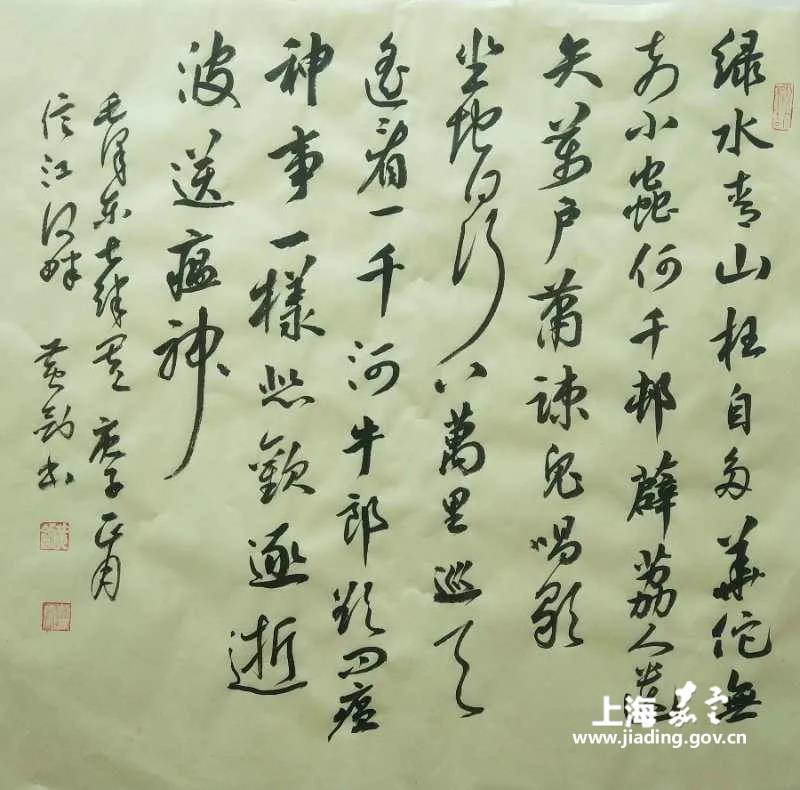 绿水青山枉自多華佗無
奈小蟲何千邨薜荔人遺
矢萬户蕭疎鬼唱歌
坐地日行八萬里巡天
遥看一千河牛郎欲问瘟
神事一樣悲歡逐逝
波送瘟神
毛泽东七律 庚子正月
信江河畔 黄 书
上海嘉定
www.jiading.gov.cn